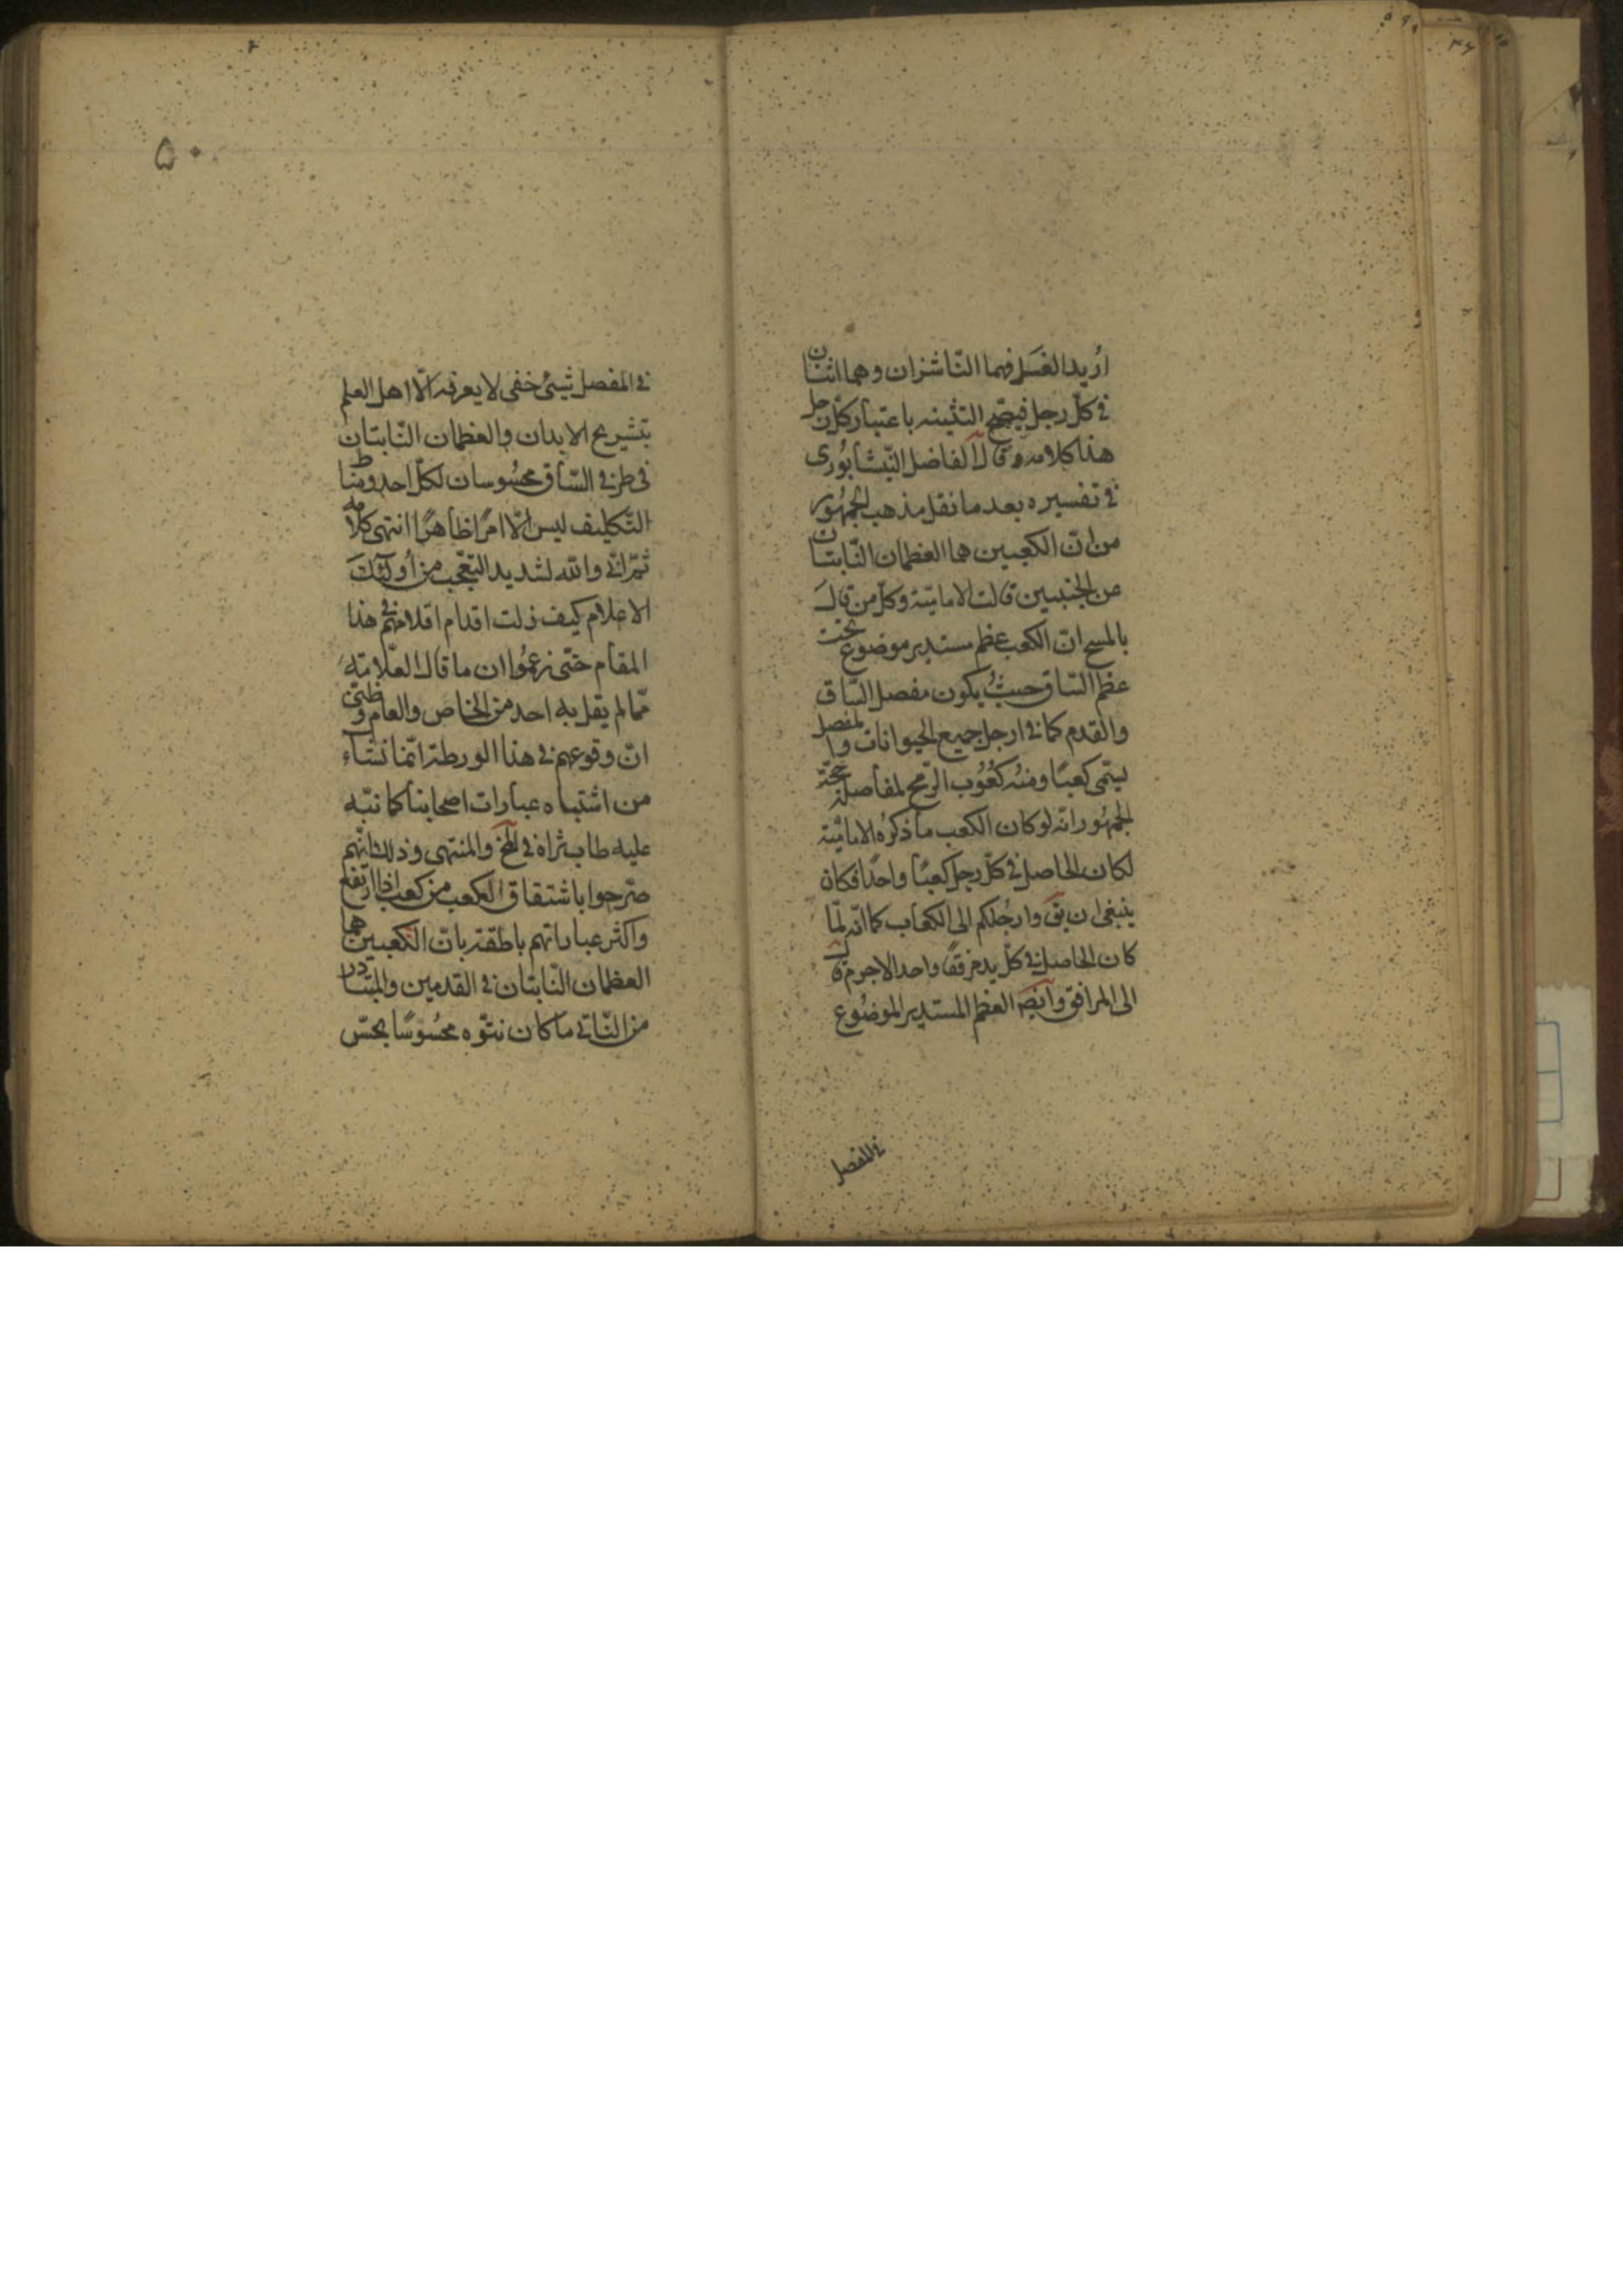 اُريد الغسل فهما النّاشزان وهما اثنان
فى كلّ رجل فيصّح التثينه باعتبار كلّ رجل
هذا كلامه وقال الفاضل النّيشابُورى
فى تفسيره بعد ما نقل مذهب الجمهُور
من انّ الكعبين هما العظمان النّابتان
عن الجنبين قالت الاماميّة وكلّ من قالَ
بالمسح انّ الكعب عظم مستدير موضوع تحت
عظم السّاق حيثُ يكون مفصل السّاق
والقدم كما فى ارجل جميع الحيوانات والمفصل
يسمّى كعبًا ومنه كعُوُب الرّمح لمفاصله حجّة
الجمهُور انّه لو كان الكعب ما ذكرُه الاماميّة
لكان الحاصل فى كلّ رجل كعبًا واحدًا فكان
ينبغى ان يقَ وارجُلكم الى الكعاب كما انّه لمّا
كان الحاصل فى كلّ يد مرفقًا واحدا لاجرم قال
الى المرافق وايضَ العظم المستدير الموضُوع
فى المفصل
۵۰
فى المفصل شيئ خفى لا يعرفه الّا اهل العلم
بتشريح الابدان والعظمان النّابتان
فى طرفى السّاق محسُوسان لكلّ احد ومناط
التّكليف ليس الّا امرًا ظاهرًا انتهى كلامه
ثمّ انّى والله لشديد التّعجّب من اُولئكَ
الاعلام كيف زلت اقدام اقلامهم فى هذا
المقام حتّى زعمُوا ان ما قال العلّامة
ممّا لم يقل به احد من الخاص والعام وظنّى
انّ وقوعهم فى هذا الورطة انّما نشاء
من اشتباه عبارات اصحابنا كما نبّه
عليه طاب ثراه فى المخ والمنتهى وذلك انّهم
صرّحوا باشتقاق الكعب من كعب اذا ارتفع
واكثر عباراتهم ناطقة بانّ الكعبين هما
العظمان النّابتان فى القدمين والمتبادر
من النّاتى ما كان نتوّه محسُوسًا بحسّ